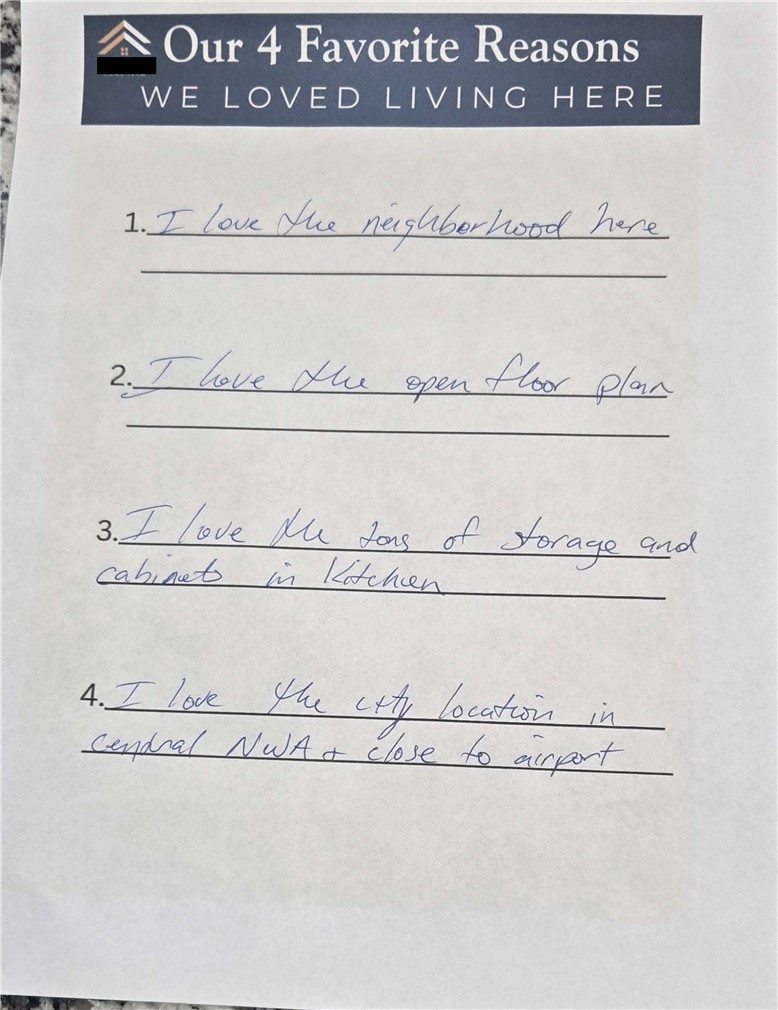 Our 4 Favorite Reasons
WE LOVED LIVING HERE
1. I love the neighborhood here
2. I love the open floor plan
3. I love the tons of storage and
cabinets in Kitchen
4. I love the city location in
central NWA + close to airport